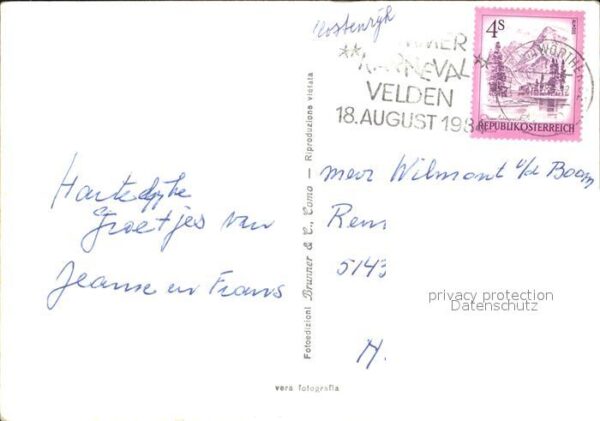 Oostenrijk
KARNEVAL
VELDEN
18. AUGUST 198
4 S
REPUBLIK ÖSTERREICH
Hartelijke
Groetjes van
Jeanne en Frans
Fotoedizioni Brunner & C., Como — Riproduzione vietata
meer Wilmont v/d Boom
Rens
5143
H.
privacy protection
Datenschutz
vera fotografia